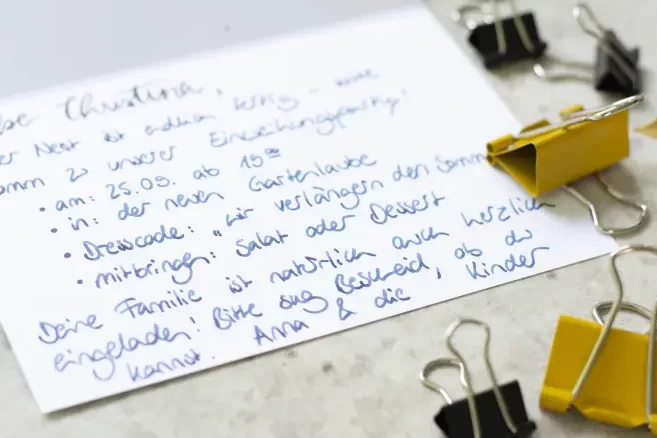 be Christina,
er Nest ist endlich fertig –
omm zu unserer Einweihungsparty!
• am: 25.09. ab 19⁰⁰
• in: der neuen Gartenlaube
• Dresscode: "wir verlängern den Somm
• mitbringen: Salat oder Dessert
Deine Familie ist natürlich auch herzlich
eingeladen! Bitte sag Bescheid, ob du
kannst. Anna & die Kinder